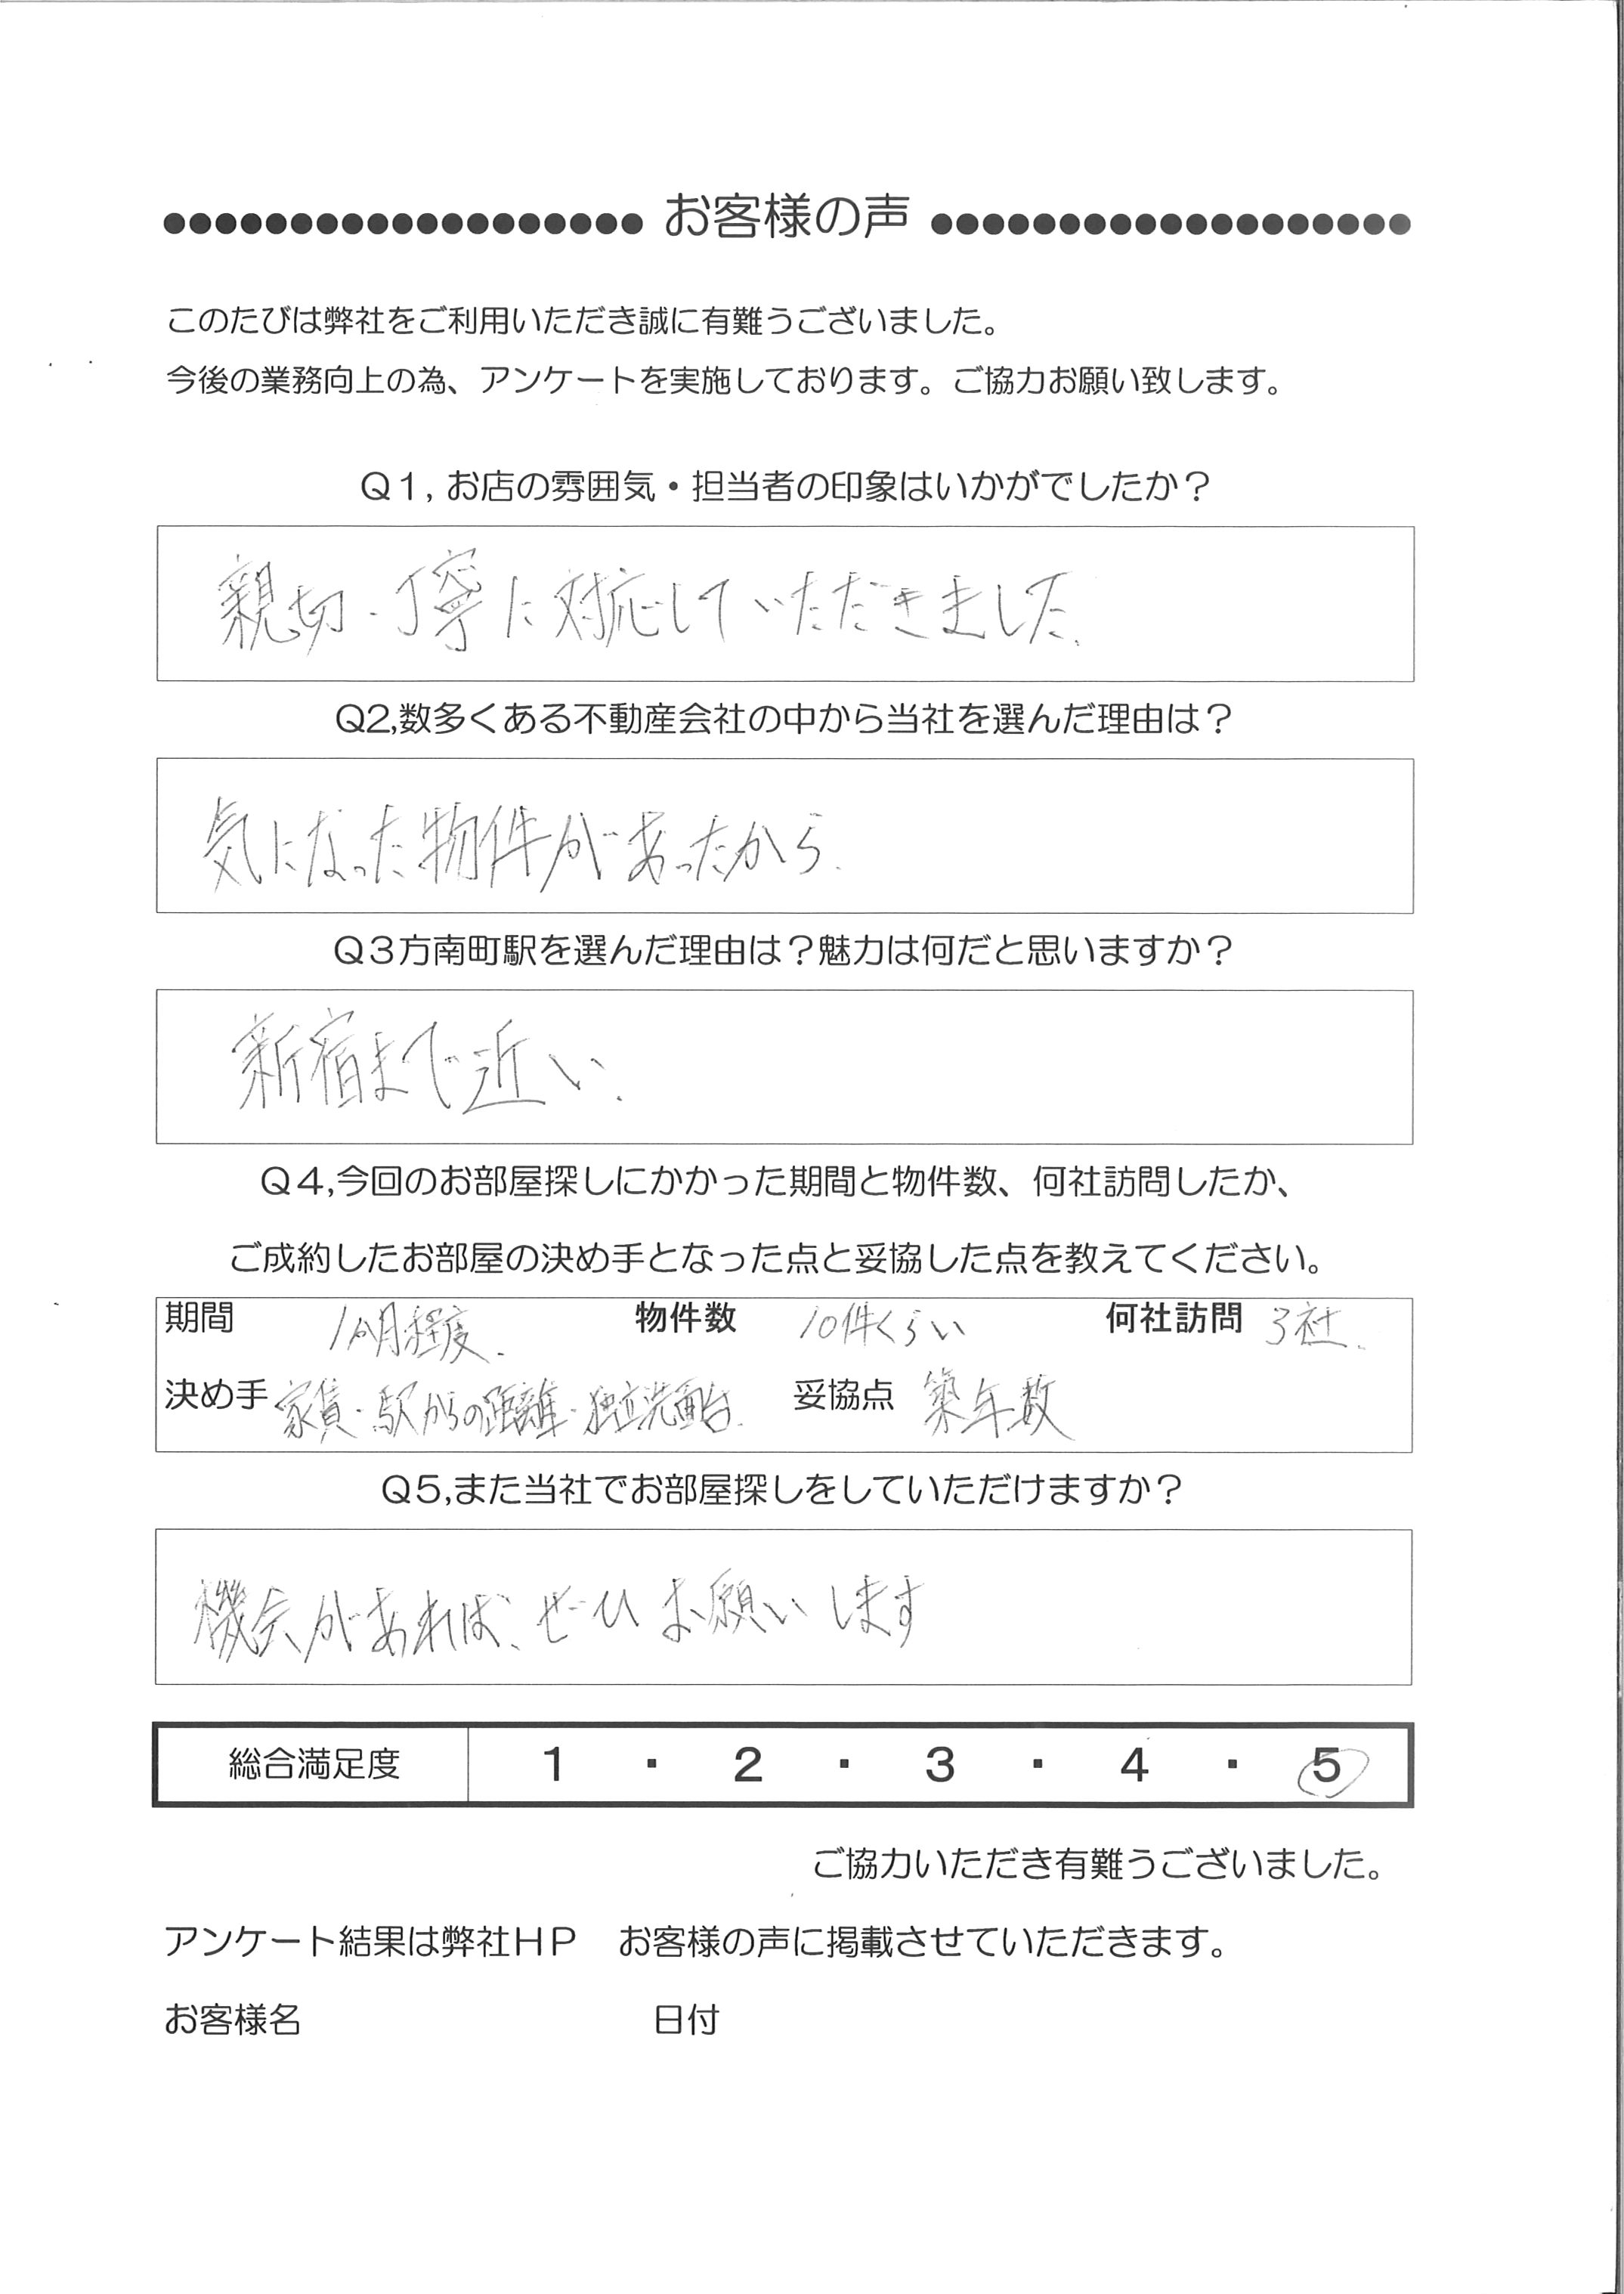 ●●●●●●●●●●●●●●●●●●● お客様の声 ●●●●●●●●●●●●●●●●●●●
このたびは弊社をご利用いただき誠に有難うございました。
今後の業務向上の為、アンケートを実施しております。ご協力お願い致します。
Q1, お店の雰囲気・担当者の印象はいかがでしたか？
親切・丁寧に対応していただきました.
Q2,数多くある不動産会社の中から当社を選んだ理由は？
気になった物件があったから.
Q3方南町駅を選んだ理由は？魅力は何だと思いますか？
新宿まで近い.
Q4,今回のお部屋探しにかかった期間と物件数、何社訪問したか、
ご成約したお部屋の決め手となった点と妥協した点を教えてください。
期間 1か月程度. 物件数 10件くらい 何社訪問 3社.
決め手 家賃・駅からの距離・独立洗面台. 妥協点 築年数
Q5,また当社でお部屋探しをしていただけますか？
機会があれば、ぜひお願いします
総合満足度 1 ・ 2 ・ 3 ・ 4 ・ 5
ご協力いただき有難うございました。
アンケート結果は弊社HP お客様の声に掲載させていただきます。
お客様名 日付